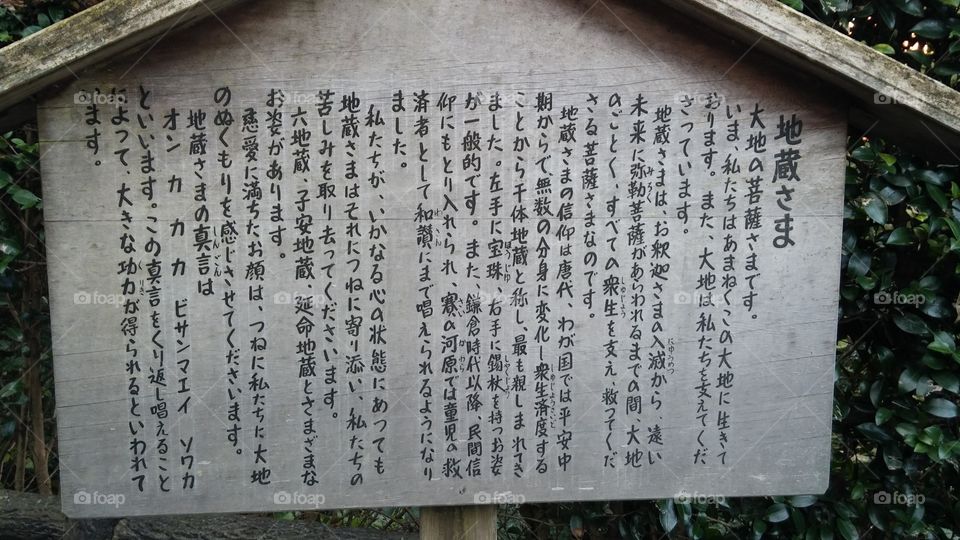 地蔵さま
大地の菩薩さまです。
いま、私たちはあまねくこの大地に生きて
おります。また、大地は私たちを支えてくだ
さっています。
地蔵さまは、お釈迦さまの入滅から、遠い
未来に弥勒菩薩があらわれるまでの間、大地
のごとく、すべての衆生を支え、救ってくだ
さる菩薩さまなのです。
地蔵さまの信仰は唐代、わが国では平安中
期からで、無数の分身に変化し衆生済度する
ことから千体地蔵と称し、最も親しまれてき
ました。左手に宝珠、右手に錫杖を持つお姿
が一般的です。また、鎌倉時代以降、民間信
仰にもとり入れられ、賽の河原では童児の救
済者として和讃にまで唱えられるようになり
ました。
私たちが、いかなる心の状態にあっても
地蔵さまはそれにつねに寄り添い、私たちの
苦しみを取り去ってくださいます。
六地蔵、子安地蔵、延命地蔵とさまざまな
お姿があります。
慈愛に満ちたお顔は、つねに私たちに大地
のぬくもりを感じさせてくださいます。
地蔵さまの真言は
オン カカカ ビサンマエイ ソワカ
といいます。この真言をくり返し唱えること
によって、大きな功力が得られるといわれて
います。
foap